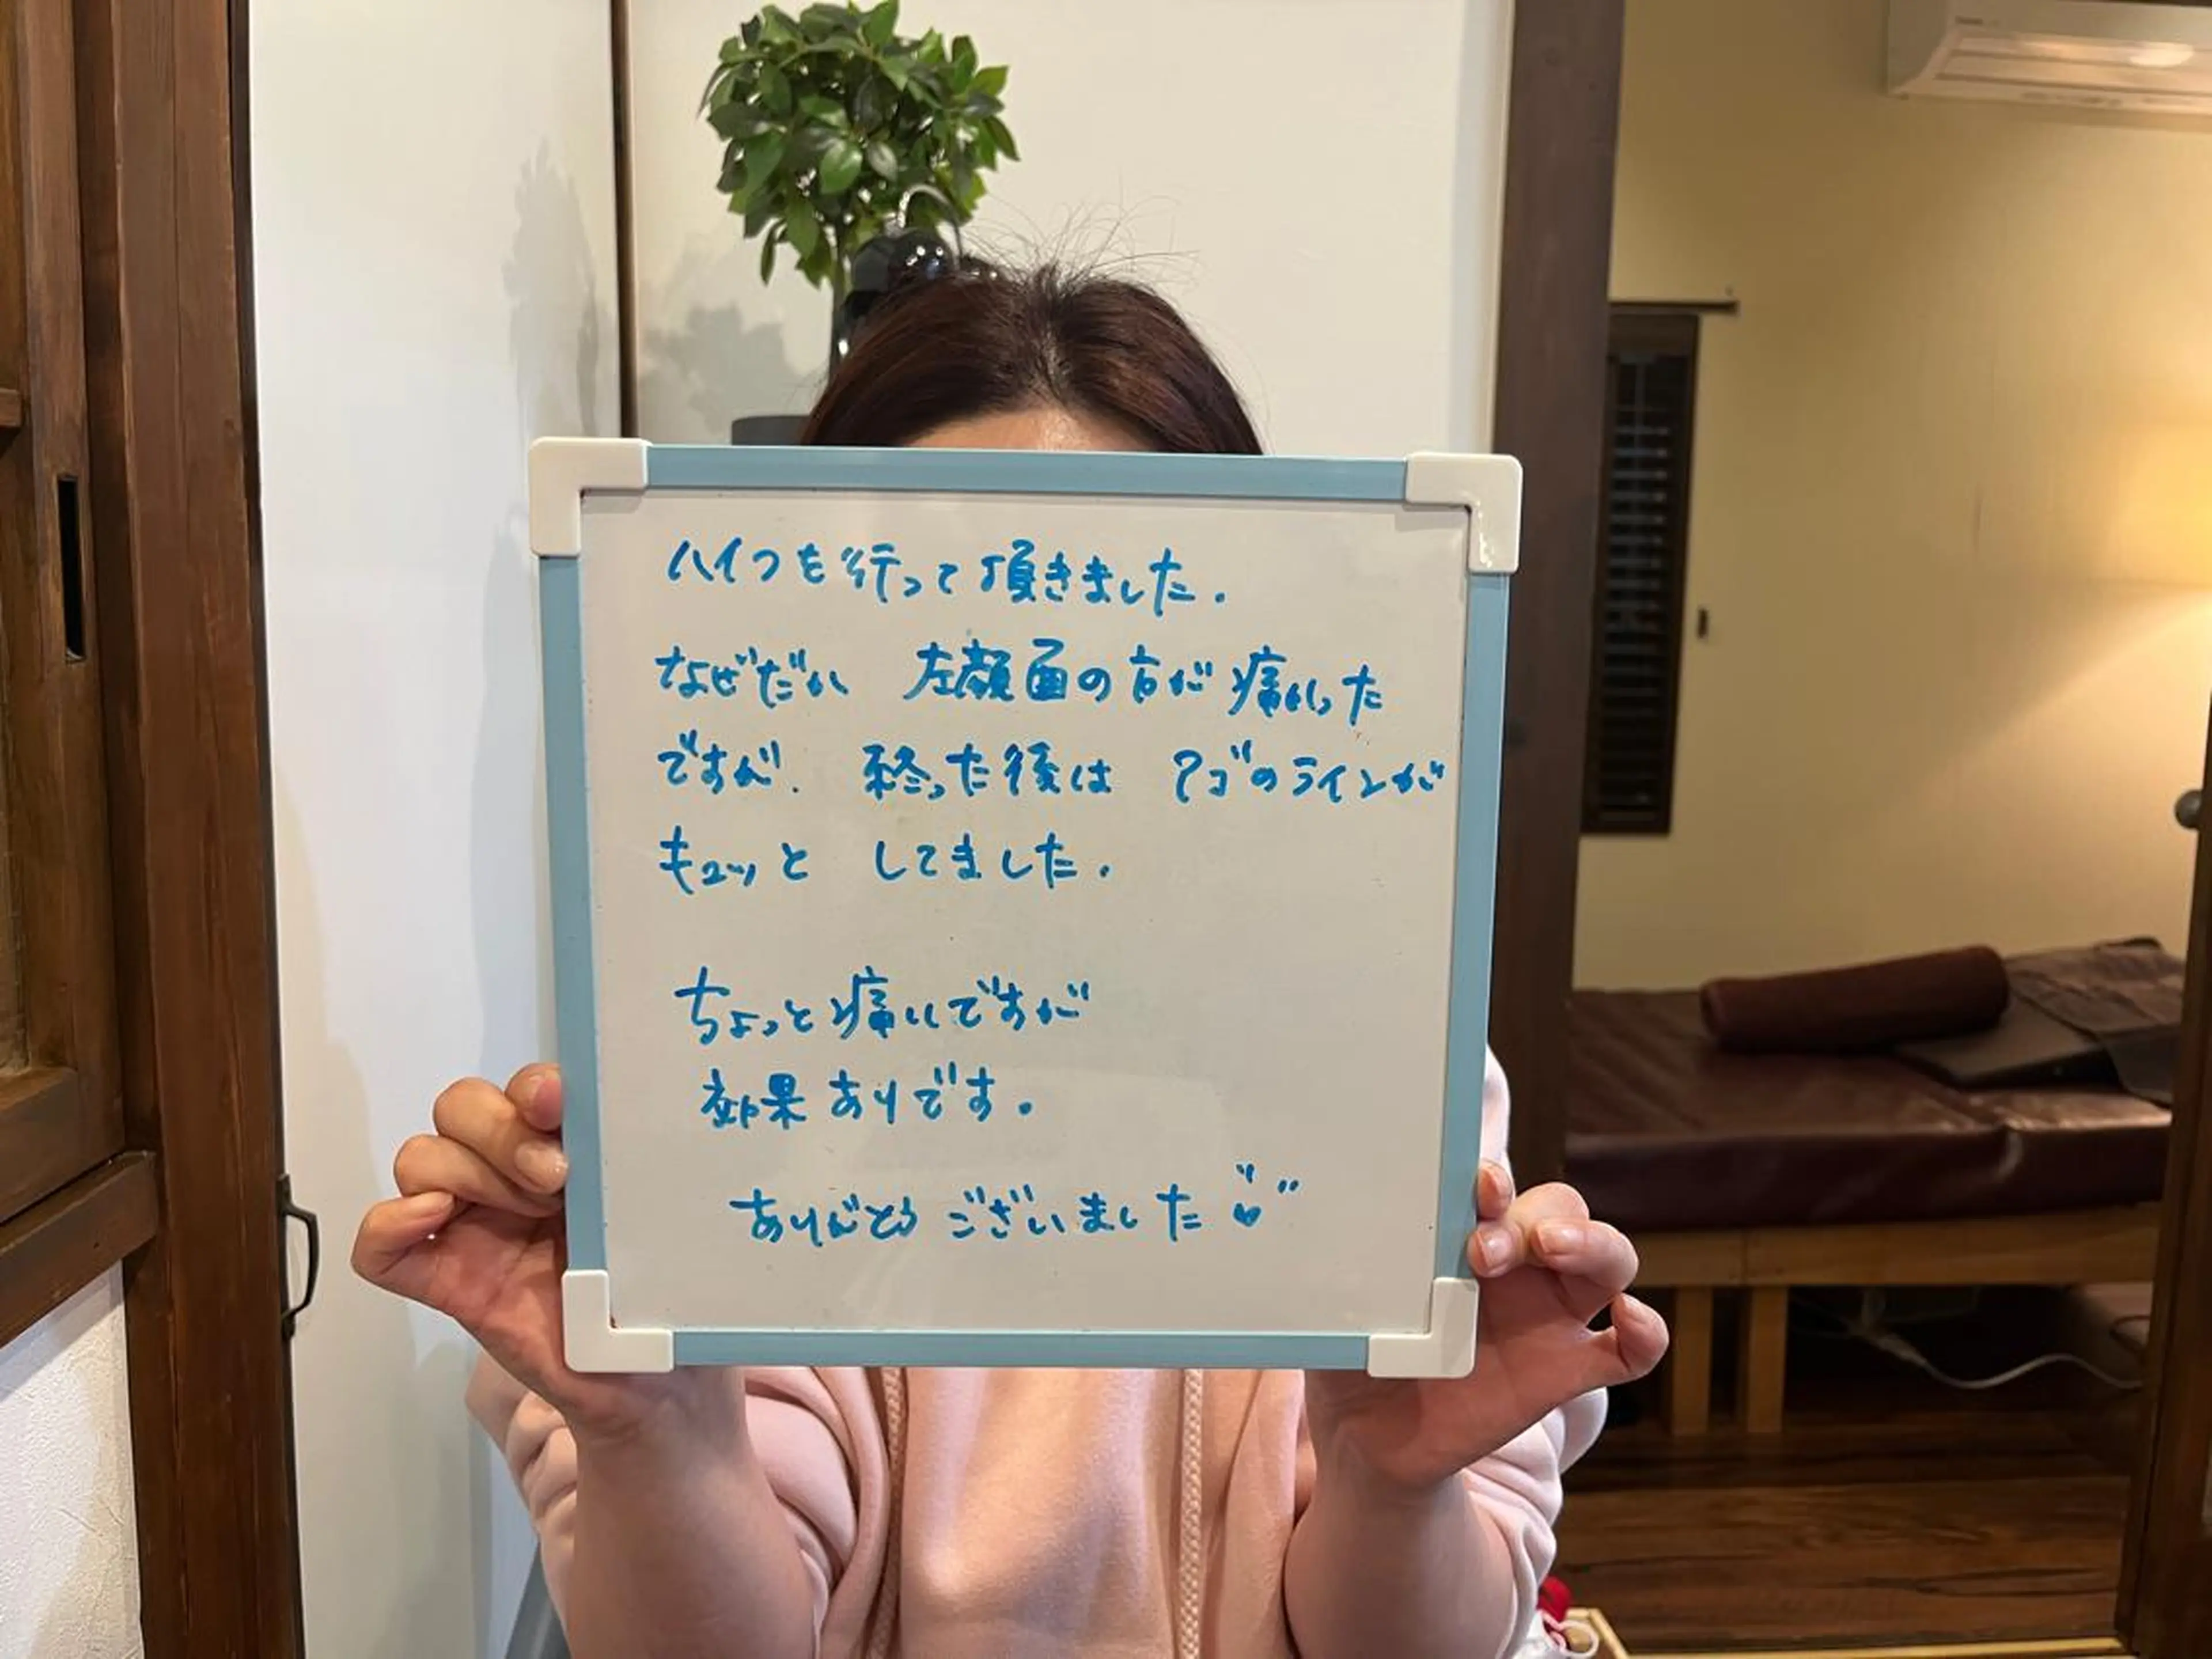 ハイフを行って頂きました.
なぜだか 左顔面の方が痛かった
ですが. 終った後は アゴのラインが
キュッと してました.
ちょっと痛いですが
効果ありです.
ありがとう ございました